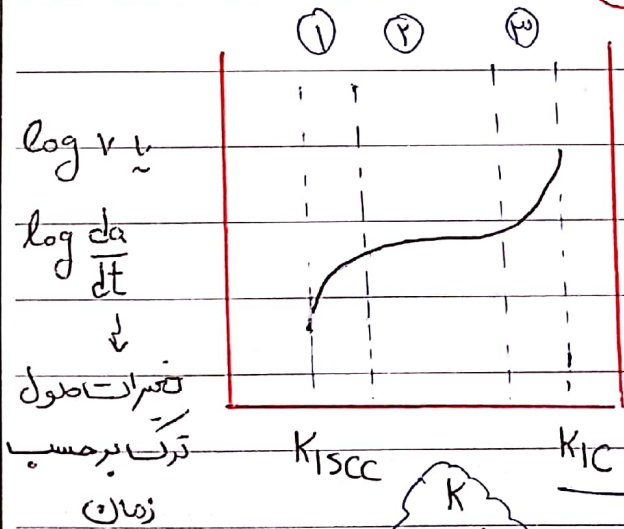 ۱ ۲ ۳
log v یا
log da/dt
↓
تغییرات طول
ترک برحسب
زمان
K₁SCC
K₁C
K